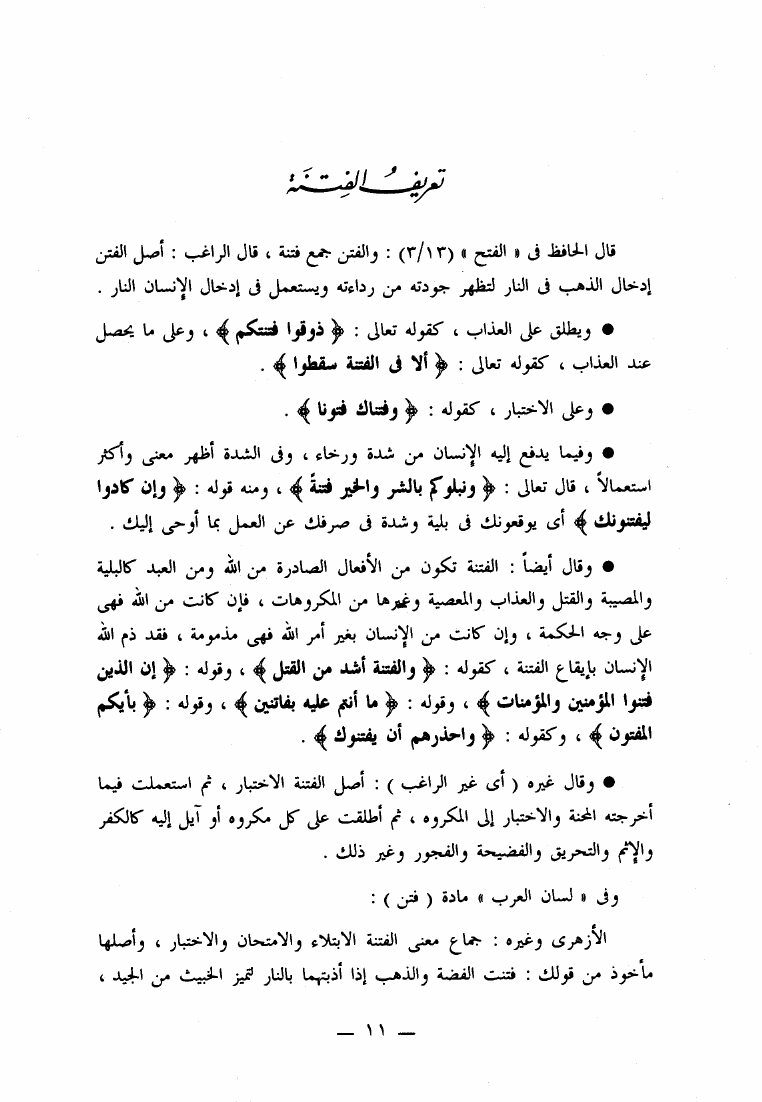 تعريفُ الفِتنَة
قال الحافظ فى « الفتح » (٣/١٣) : والفتن جمع فتنة ، قال الراغب : أصل الفتن
إدخال الذهب فى النار لتظهر جودته من رداءته ويستعمل فى إدخال الإنسان النار .
● ويطلق على العذاب ، كقوله تعالى : ﴿ ذوقوا فتنتكم ﴾ ، وعلى ما يحصل
عند العذاب ، كقوله تعالى : ﴿ ألا فى الفتنة سقطوا ﴾ .
● وعلى الاختبار ، كقوله : ﴿ وفتناك فتونا ﴾ .
● وفيما يدفع إليه الإنسان من شدة ورخاء ، وفى الشدة أظهر معنى وأكثر
استعمالاً ، قال تعالى : ﴿ ونبلوكم بالشر والخير فتنةً ﴾ ، ومنه قوله : ﴿ وإن كادوا
ليفتنونك ﴾ أى يوقعونك فى بلية وشدة فى صرفك عن العمل بما أوحى إليك .
● وقال أيضاً : الفتنة تكون من الأفعال الصادرة من الله ومن العبد كالبلية
والمصيبة والقتل والعذاب والمعصية وغيرها من المكروهات ، فإن كانت من الله فهى
على وجه الحكمة ، وإن كانت من الإنسان بغير أمر الله فهى مذمومة ، فقد ذم الله
الإنسان بإيقاع الفتنة ، كقوله : ﴿ والفتنة أشد من القتل ﴾ ، وقوله : ﴿ إن الذين
فتنوا المؤمنين والمؤمنات ﴾ ، وقوله : ﴿ ما أنتم عليه بفاتنين ﴾ ، وقوله : ﴿ بأيكم
المفتون ﴾ ، وكقوله : ﴿ واحذرهم أن يفتنوك ﴾ .
● وقال غيره ( أى غير الراغب ) : أصل الفتنة الاختبار ، ثم استعملت فيما
أخرجته المحنة والاختبار إلى المكروه ، ثم أطلقت على كل مكروه أو آيل إليه كالكفر
والإثم والتحريق والفضيحة والفجور وغير ذلك .
وفى « لسان العرب » مادة ( فتن ) :
الأزهرى وغيره : جماع معنى الفتنة الابتلاء والامتحان والاختبار ، وأصلها
مأخوذ من قولك : فتنت الفضة والذهب إذا أذبتهما بالنار لتميز الخبيث من الجيد ،
— ١١ —